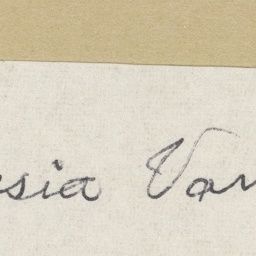 sia Van